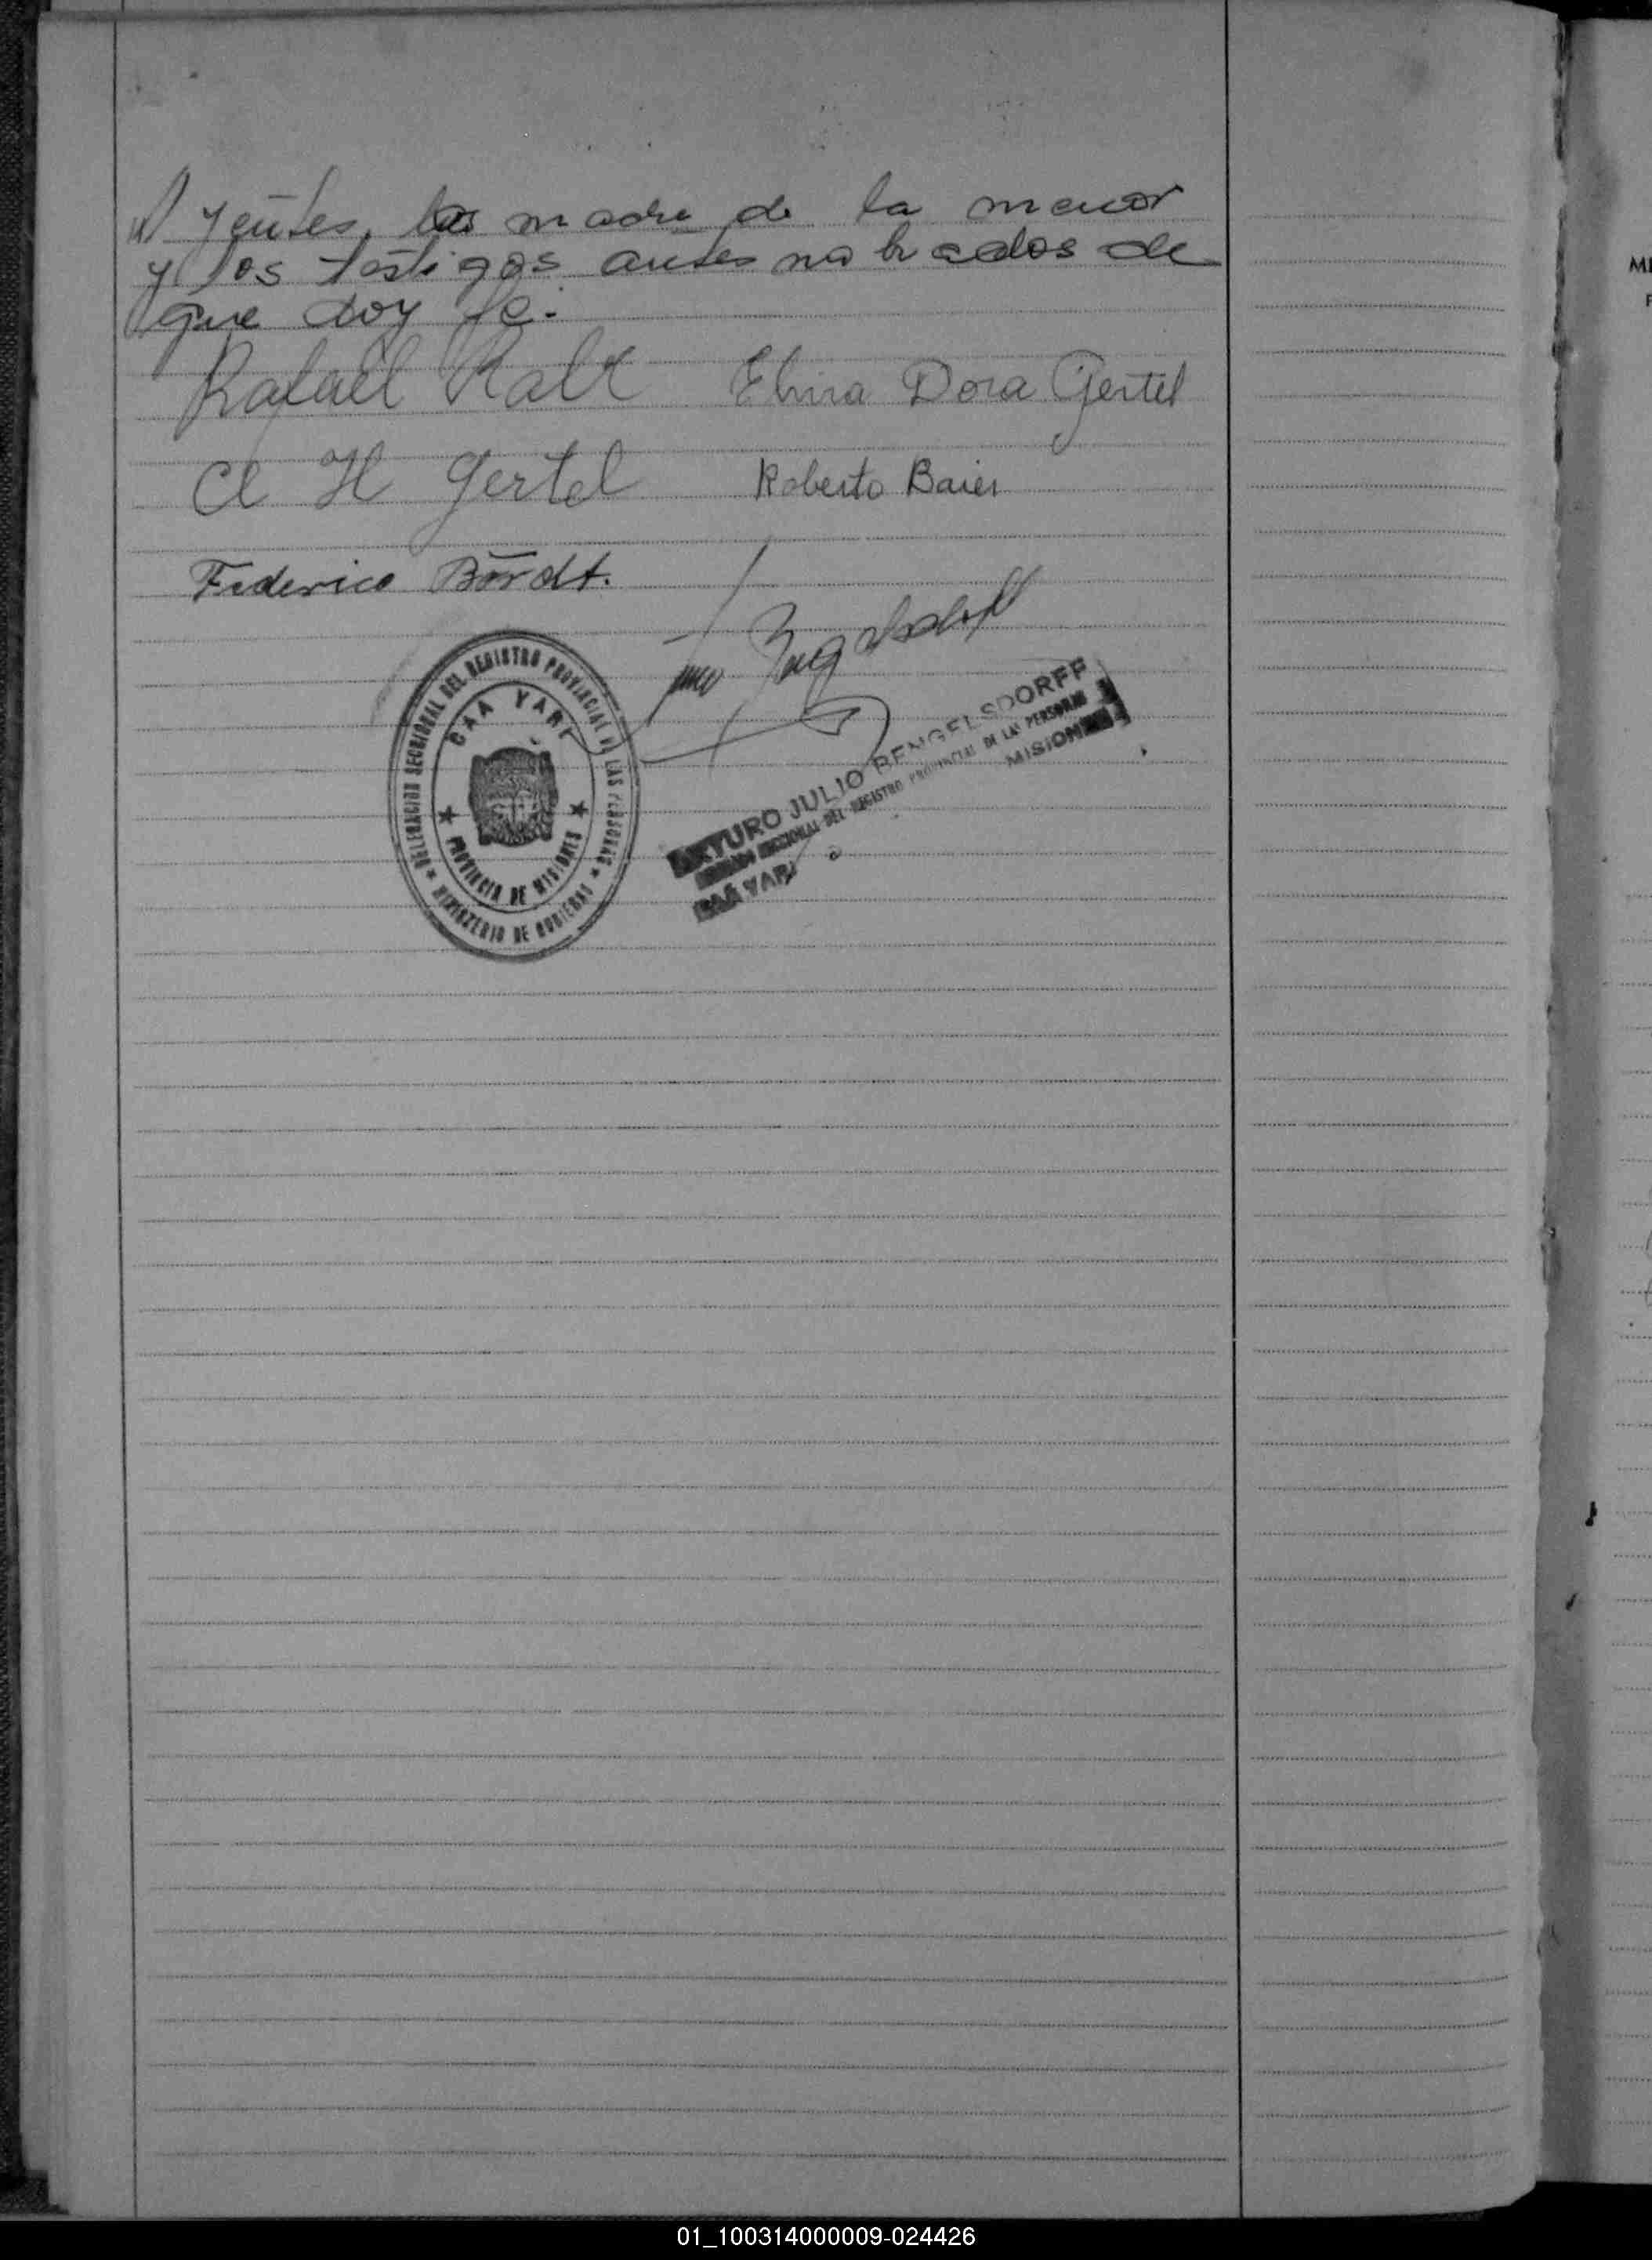 yentes, la madre de la menor
y los testigos antes nobrados de
que doy fe.
Rafael Kalt Elvira Dora Gertel
A H Gertel Roberto Baier
Federico Bordt.
DELEGACION SECCIONAL DEL REGISTRO PROVINCIAL DE LAS PERSONAS
CAA YARI
PROVINCIA DE MISIONES
MINISTERIO DE GOBIERNO
ARTURO JULIO BENGELSDORFF
SECCIONAL DEL REGISTRO PROVINCIAL DE LAS PERSONAS
CAA YARI MISIONES
01_100314000009-024426